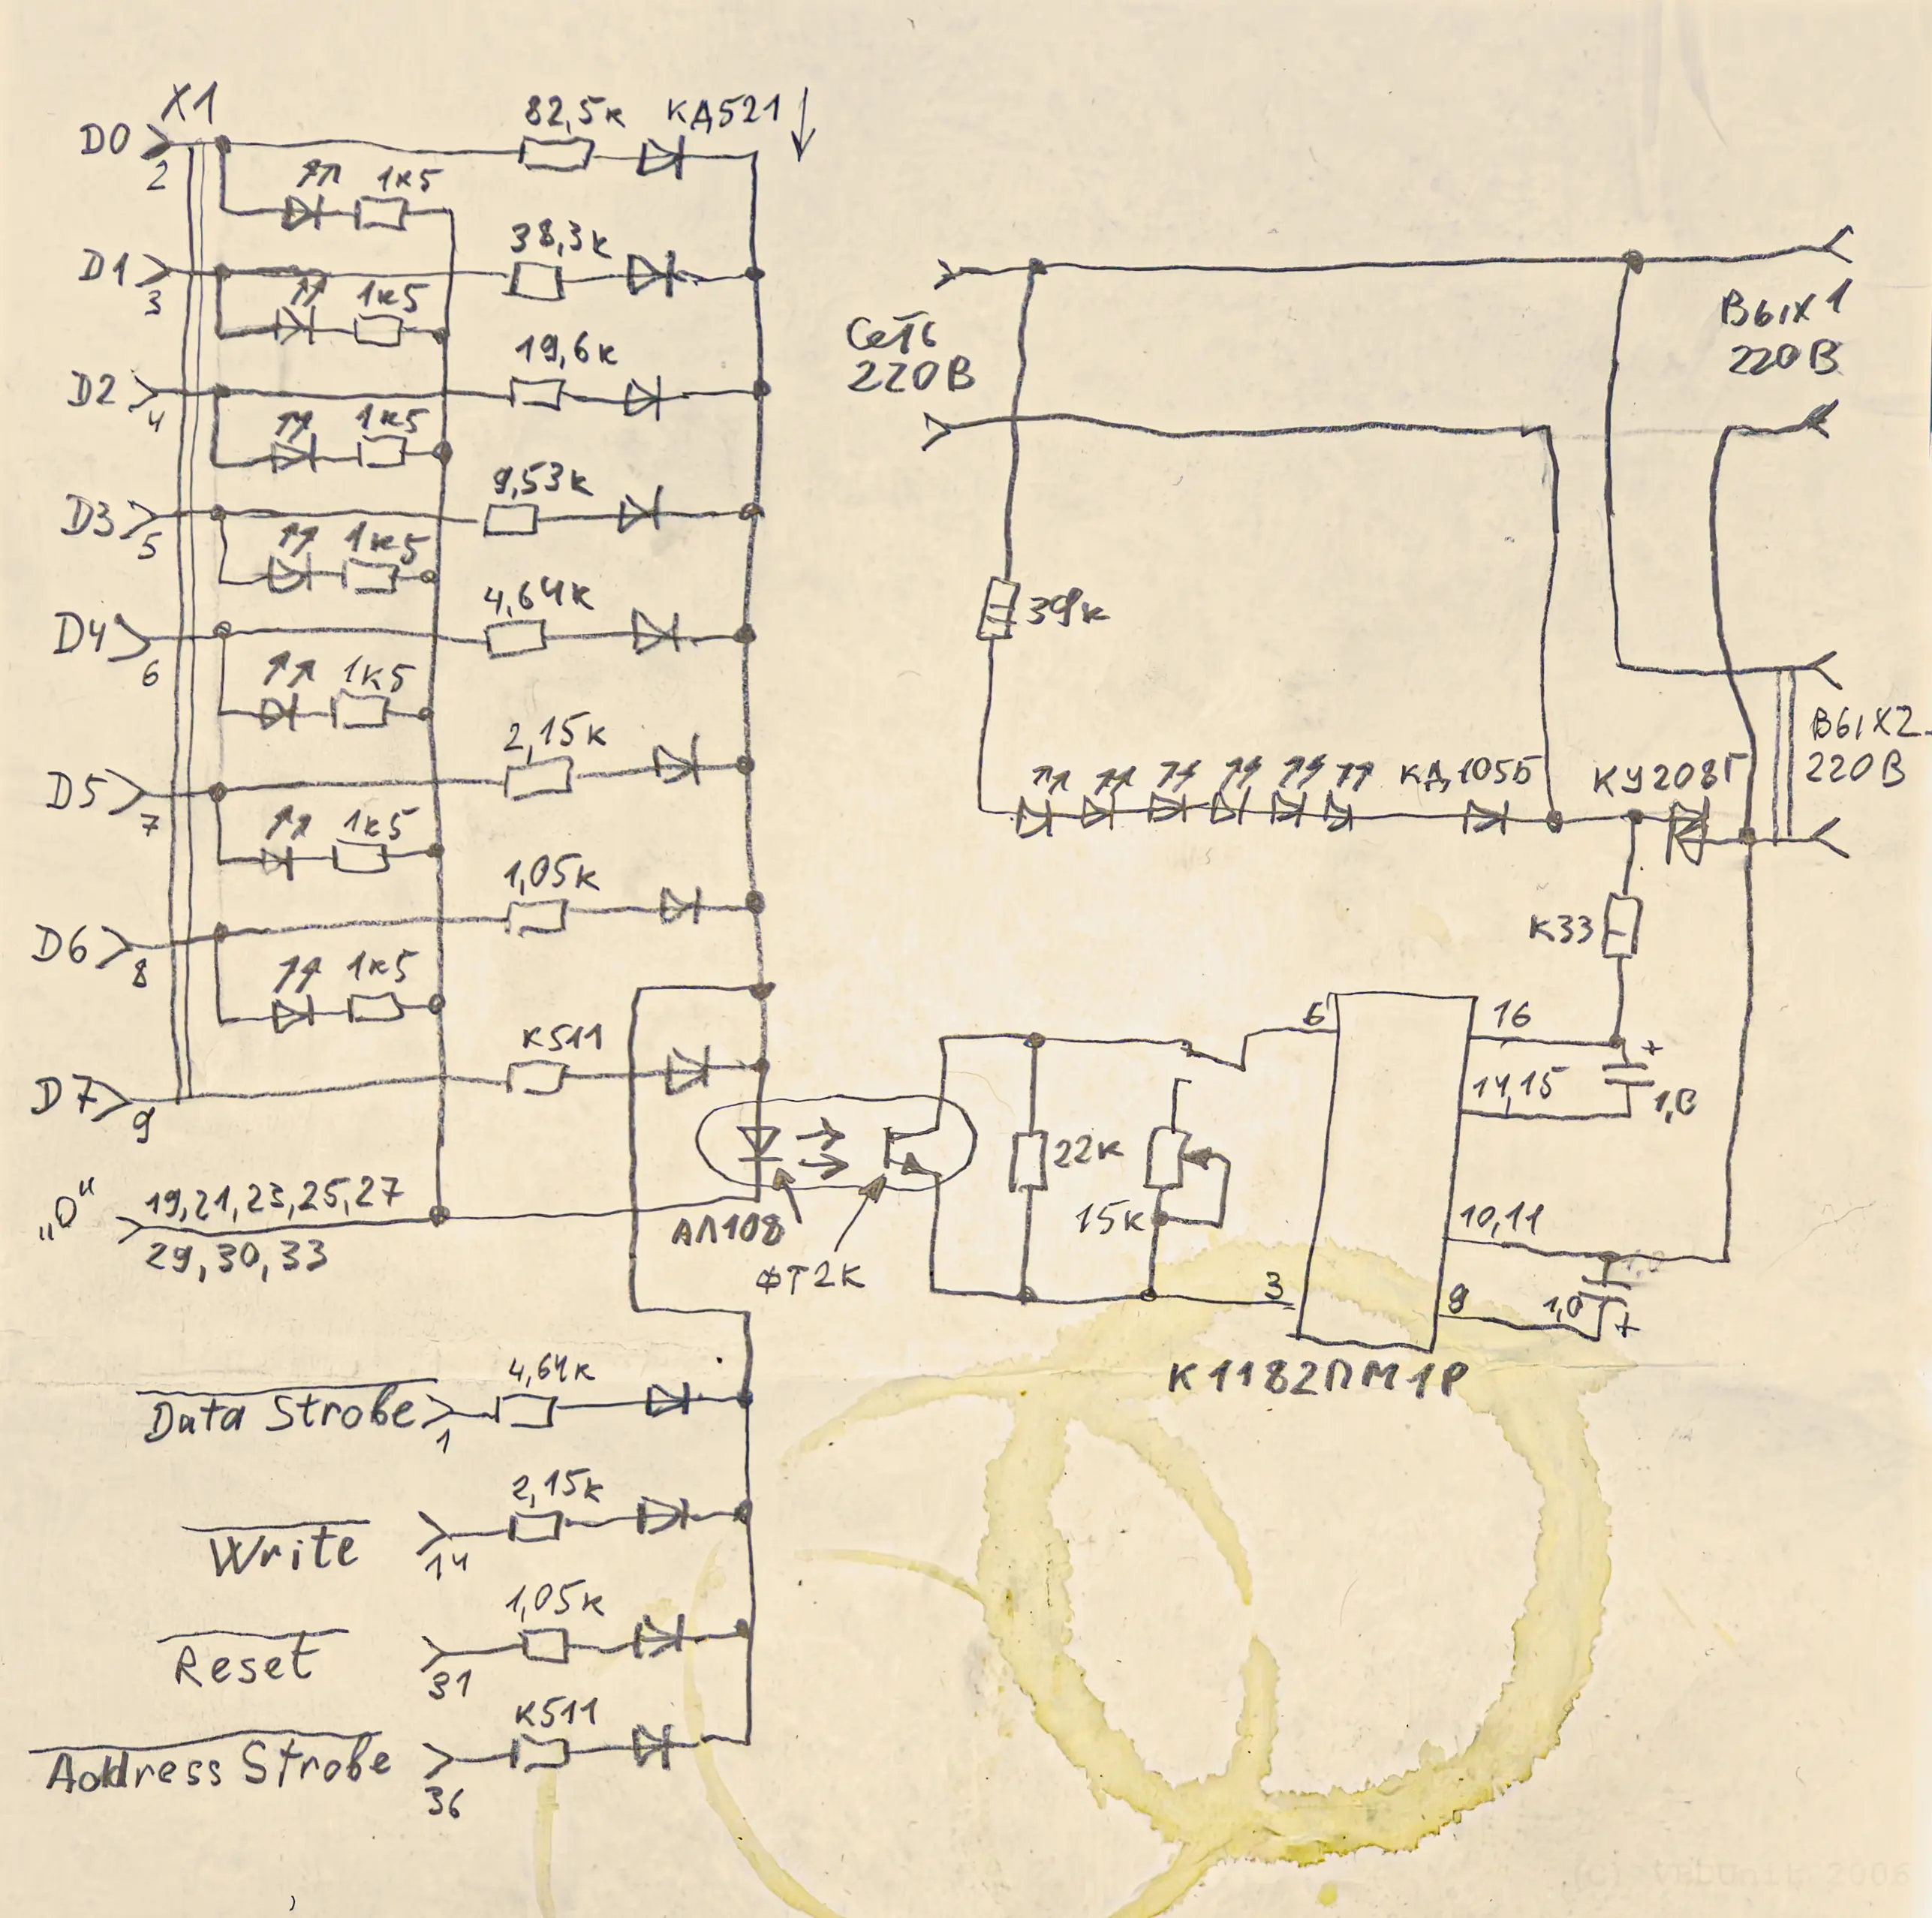 X1
82,5к
КД521
D0
2
1к5
38,3к
D1
3
1к5
19,6к
D2
4
1к5
9,53к
D3
5
1к5
4,64к
D4
6
1к5
2,15к
D5
7
1к5
1,05к
D6
8
1к5
К511
D7
9
„0“
19,21,23,25,27
29,30,33
АЛ108
ФТ2К
Data Strobe
1
4,64к
Write
14
2,15к
Reset
31
1,05к
Address Strobe
36
К511
Сеть
220В
Вых1
220В
39к
КД105Б
КУ208Г
Вых2
220В
К33
6
16
+
14,15
1,0
22к
15к
10,11
3
9
1,0
+
К1182ПМ1Р